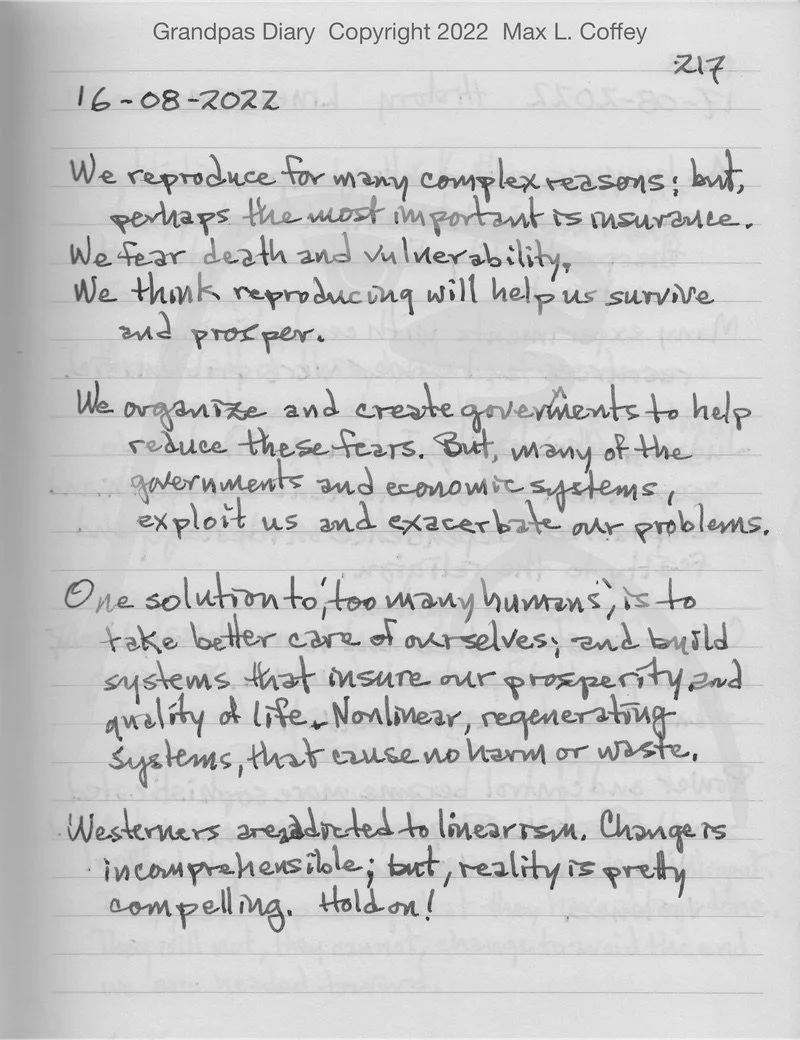 Grandpas Diary Copyright 2022 Max L. Coffey
217
16-08-2022
We reproduce for many complex reasons; but,
perhaps the most important is insurance.
We fear death and vulnerability.
We think reproducing will help us survive
and prosper.
We organize and create governments to help
reduce these fears. But, many of the
governments and economic systems,
exploit us and exacerbate our problems.
One solution to, 'too many humans', is to
take better care of ourselves; and build
systems that insure our prosperity and
quality of life. Nonlinear, regenerating
systems, that cause no harm or waste.
Westerners are addicted to linearism. Change is
incomprehensible; but, reality is pretty
compelling. Hold on!